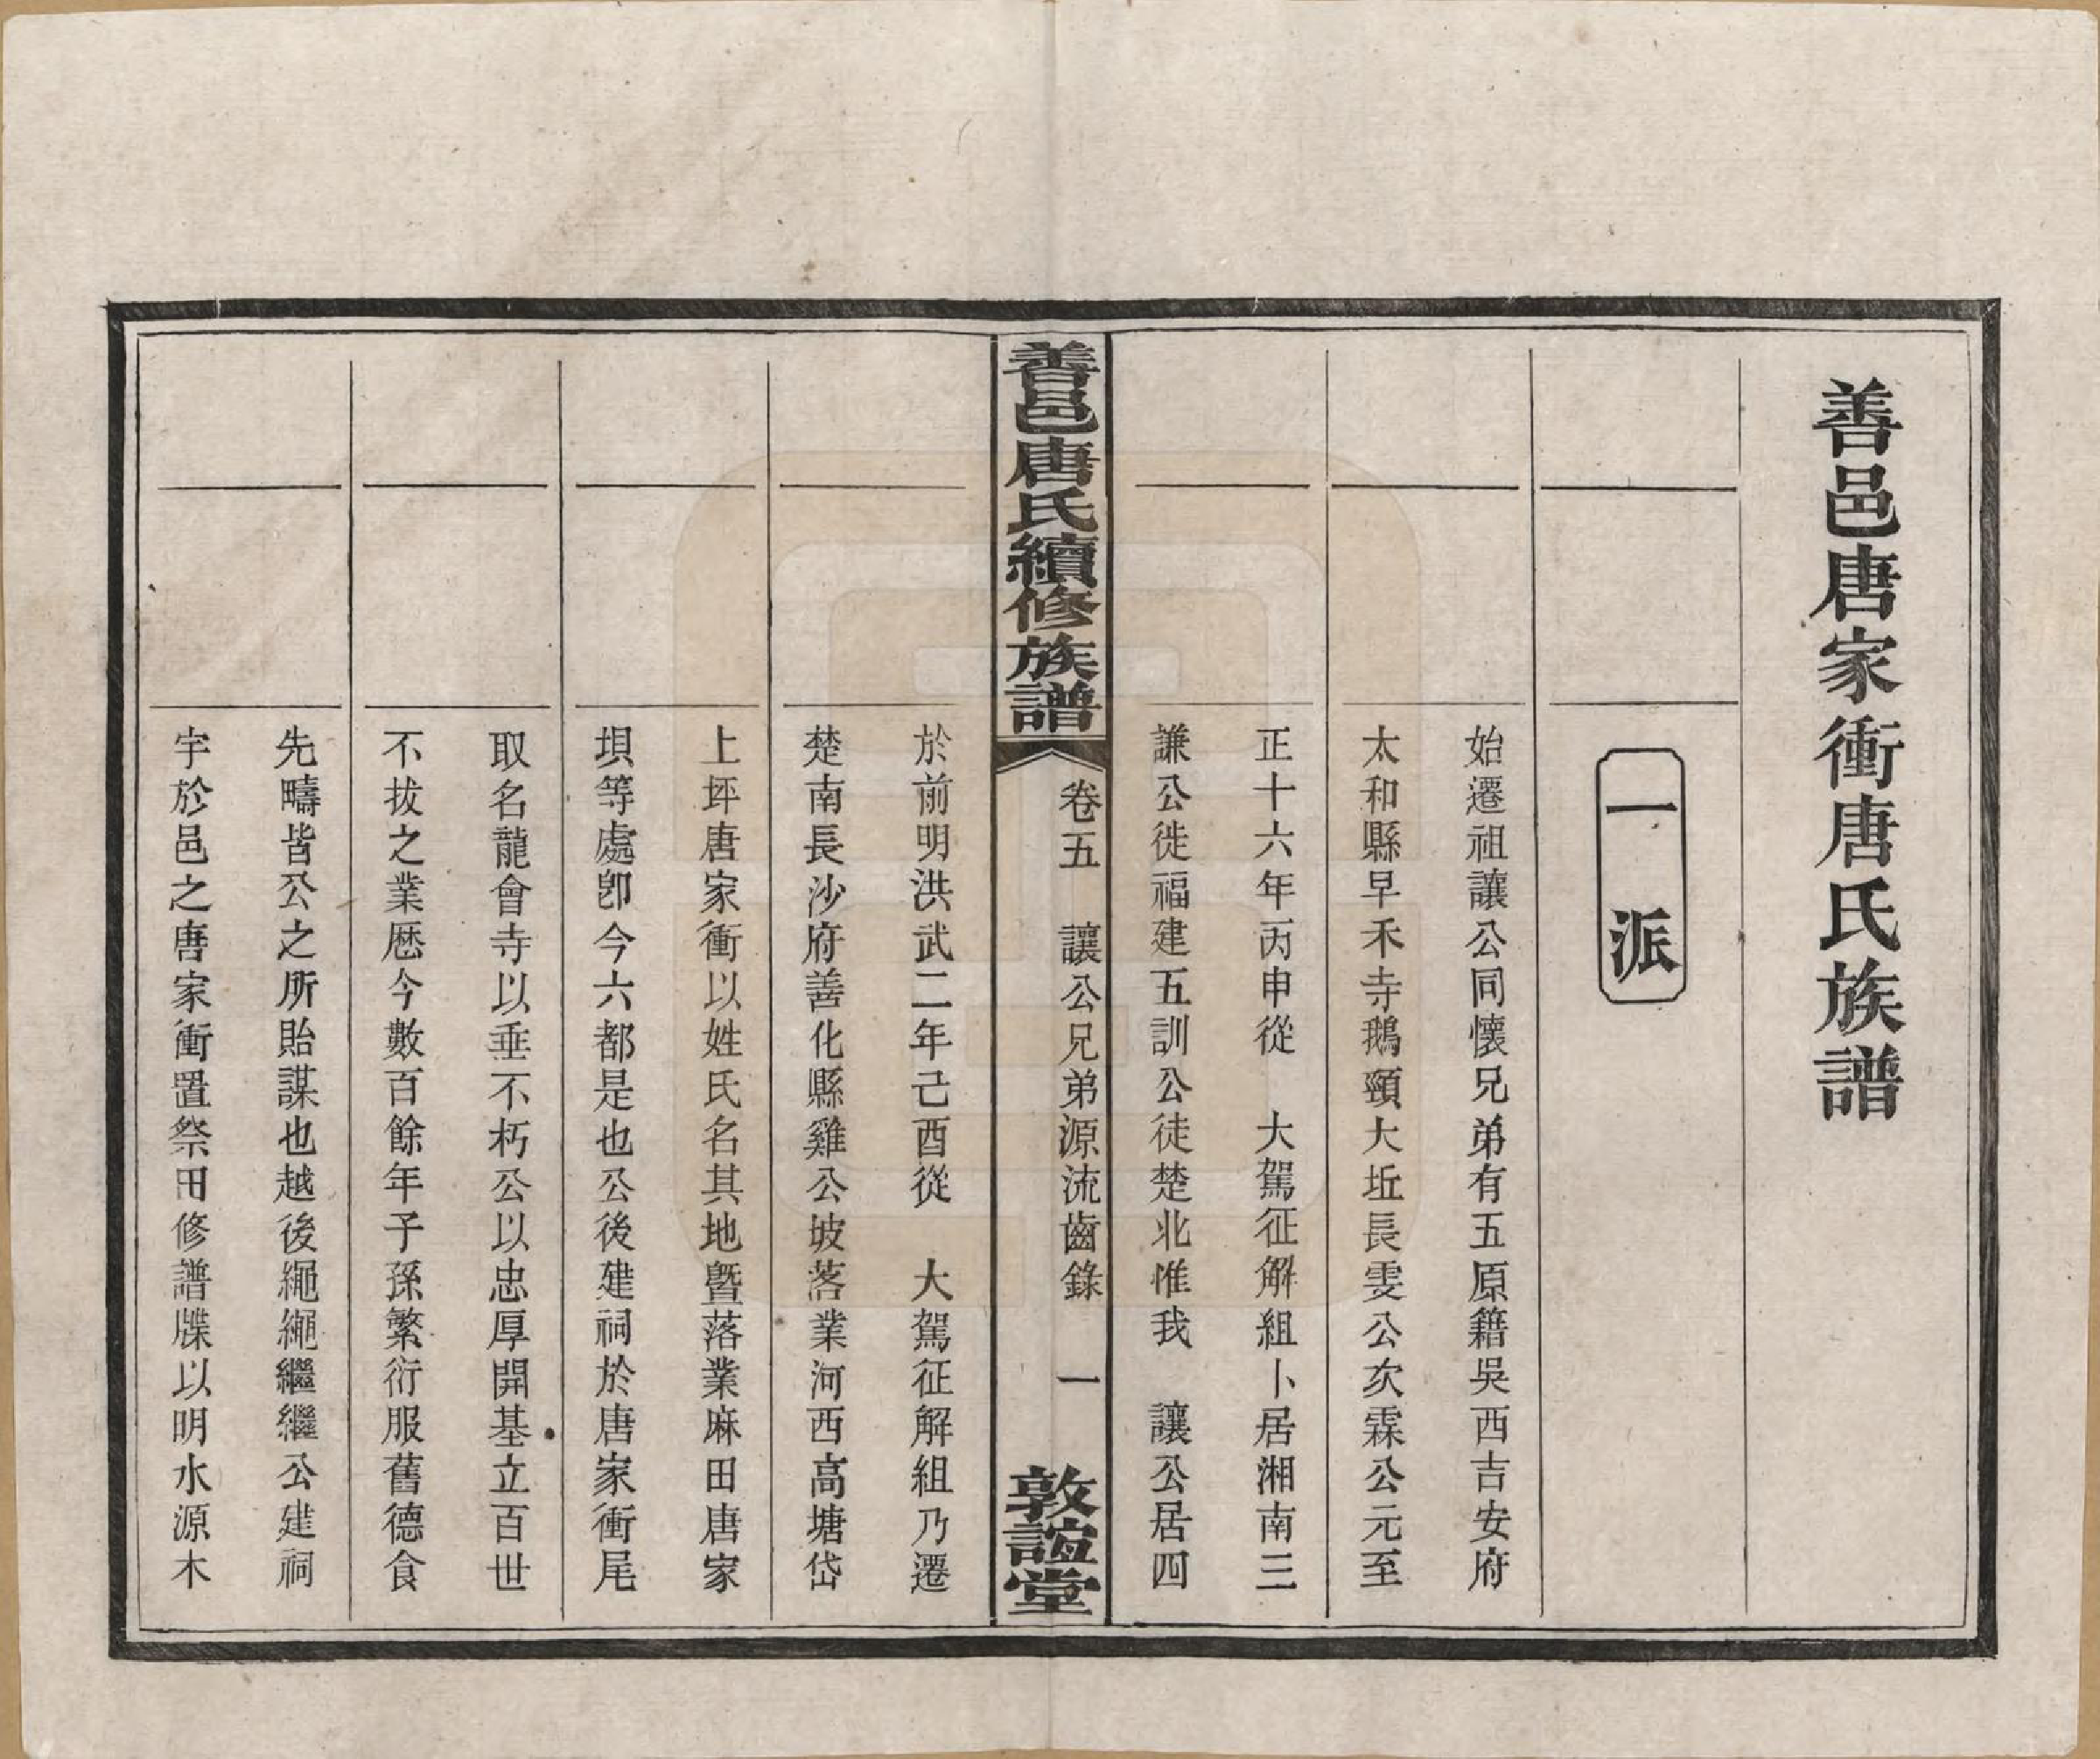 善邑唐家衝唐氏族譜
一派
始遷祖讓公同懷兄弟有五原籍吳西吉安府
太和縣早禾寺鵝頸大坵長雯公次霖公元至
正十六年丙申從　大駕征解組卜居湘南三
謙公徙福建五訓公徒楚北惟我　讓公居四
善邑唐氏續修族譜
卷五　讓公兄弟源流齒錄　一
敦誼堂
於前明洪武二年己酉從　大駕征解組乃遷
楚南長沙府善化縣雞公坡落業河西高塘岱
上坪唐家衝以姓氏名其地曁落業麻田唐家
垻等處卽今六都是也公後建祠於唐家衝尾
取名龍會寺以垂不朽公以忠厚開基立百世
不拔之業歴今數百餘年子孫繁衍服舊德食
先疇皆公之所貽謀也越後繩繩繼繼公建祠
宇於邑之唐家衝置祭田修譜牒以明水源木